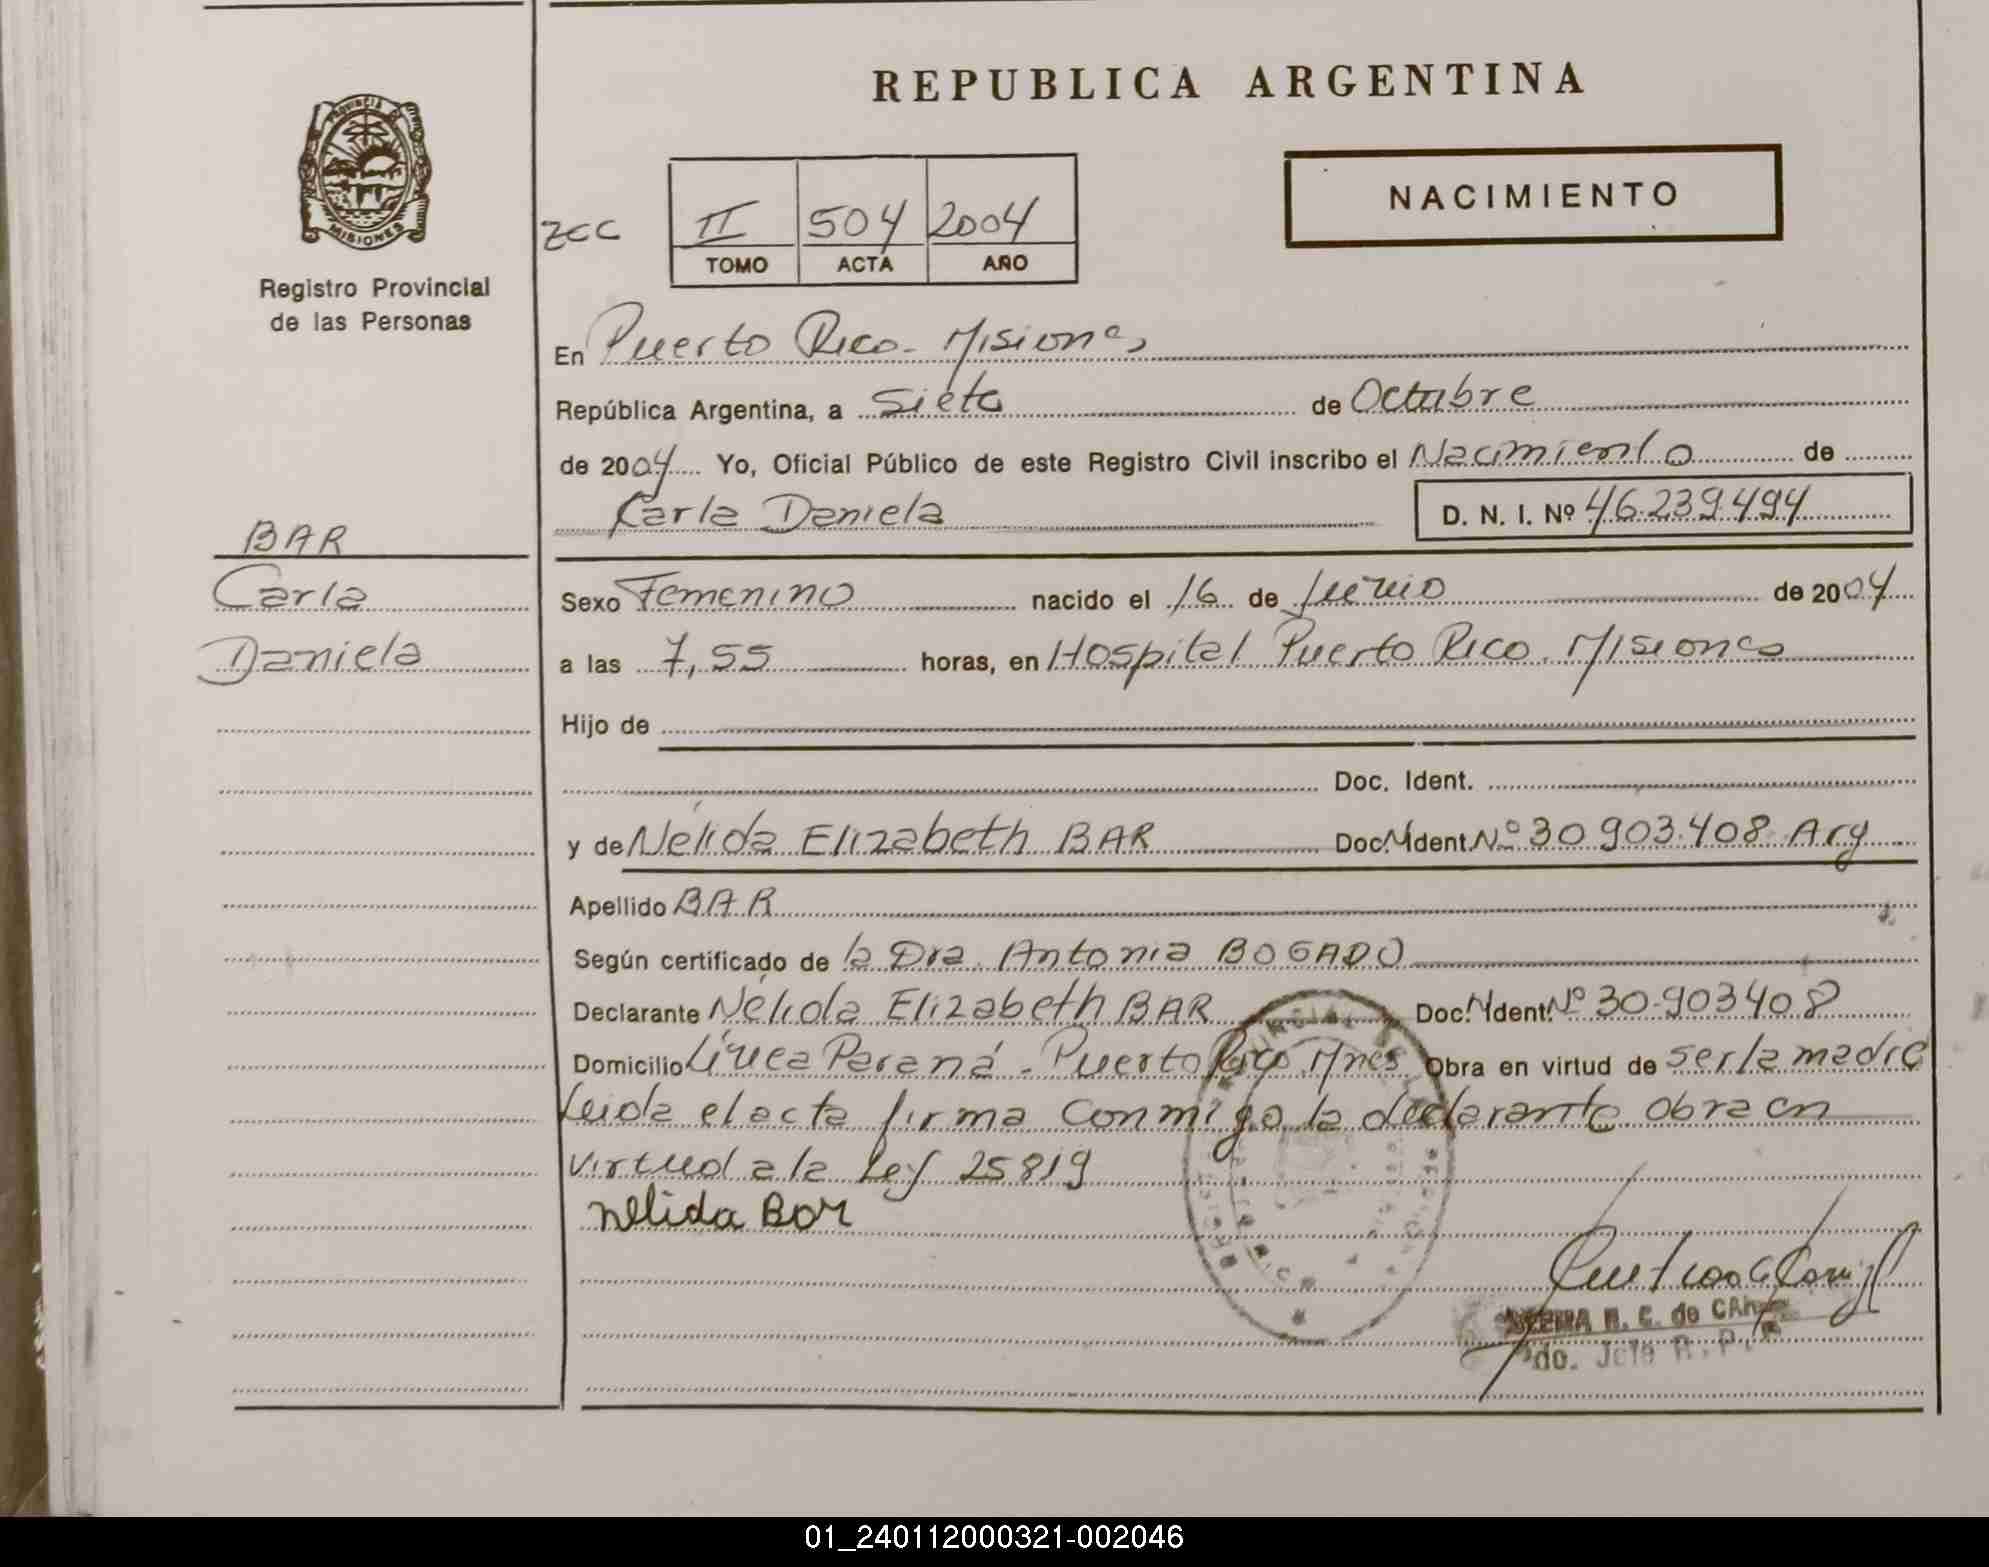 REPUBLICA ARGENTINA
PROVINCIA DE
MISIONES
Registro Provincial
de las Personas
NACIMIENTO
ZCC
II 504 2004
TOMO ACTA AÑO
En Puerto Rico - Misiones
República Argentina, a Siete de Octubre
de 2004 Yo, Oficial Público de este Registro Civil inscribo el Nacimiento de
Carla Daniela D. N. I. Nº 46.239.494
BAR
Carla
Daniela
Sexo Femenino nacido el 16 de Junio de 2004
a las 7,55 horas, en Hospital Puerto Rico. Misiones
Hijo de
Doc. Ident.
y de Nélida Elizabeth BAR Doc. N Ident. Nº 30 903.408 Arg
Apellido BAR
Según certificado de la Dra. Antonia BOGADO
Declarante Nélida Elizabeth BAR Doc. N Ident. Nº 30.903408
Domicilio Línea Paraná - Puerto Rico Mnes Obra en virtud de ser la madre
Leida el acta firma conmigo la declarante obra en
virtud a la Ley 25819
nelida Bar
de
Jefe R. P.
01_240112000321-002046